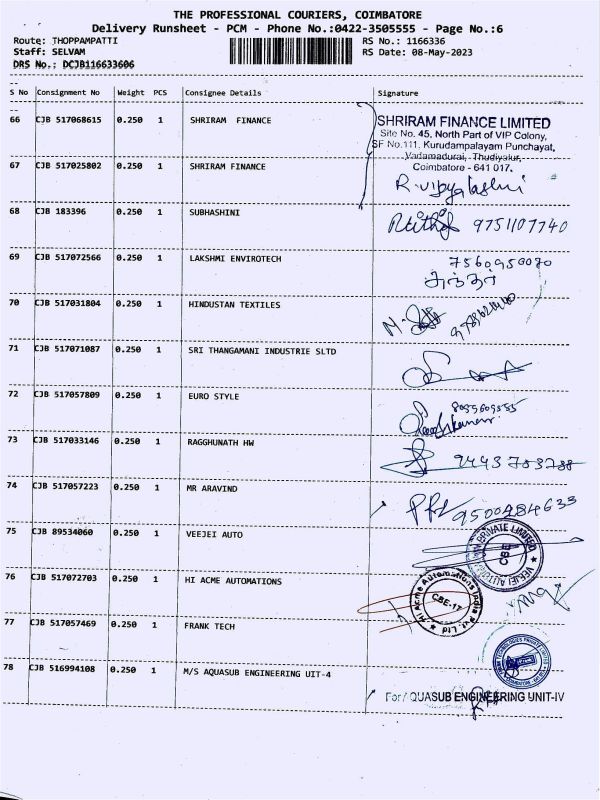 THE PROFESSIONAL COURIERS, COIMBATORE
Delivery Runsheet - PCM - Phone No.:0422-3505555 - Page No.:6
Route: THOPPAMPATTI RS No.: 1166336
Staff: SELVAM RS Date: 08-May-2023
DRS No.: DCJB116633606
S No Consignment No Weight PCS Consignee Details Signature
66 CJB 517068615 0.250 1 SHRIRAM FINANCE
SHRIRAM FINANCE LIMITED
Site No. 45, North Part of VIP Colony,
SF No.111, Kurudampalayam Punchayat,
Vadamadurai, Thudiyalur,
Coimbatore - 641 017.
67 CJB 517025802 0.250 1 SHRIRAM FINANCE
R. Vijyalashmi
68 CJB 183396 0.250 1 SUBHASHINI
9751107740
69 CJB 517072566 0.250 1 LAKSHMI ENVIROTECH
7560950070
70 CJB 517031804 0.250 1 HINDUSTAN TEXTILES
71 CJB 517071087 0.250 1 SRI THANGAMANI INDUSTRIE SLTD
72 CJB 517057809 0.250 1 EURO STYLE
73 CJB 517033146 0.250 1 RAGGHUNATH HW
9443753788
74 CJB 517057223 0.250 1 MR ARAVIND
9500284633
75 CJB 89534060 0.250 1 VEEJEI AUTO
PRIVATE LIMITED
VEEJEI AUTO
CBE
76 CJB 517072703 0.250 1 HI ACME AUTOMATIONS
Hi Acme Automations India Pvt. Ltd
CBE-17
77 CJB 517057469 0.250 1 FRANK TECH
78 CJB 516994108 0.250 1 M/S AQUASUB ENGINEERING UIT-4
For / QUASUB ENGINEERING UNIT-IV